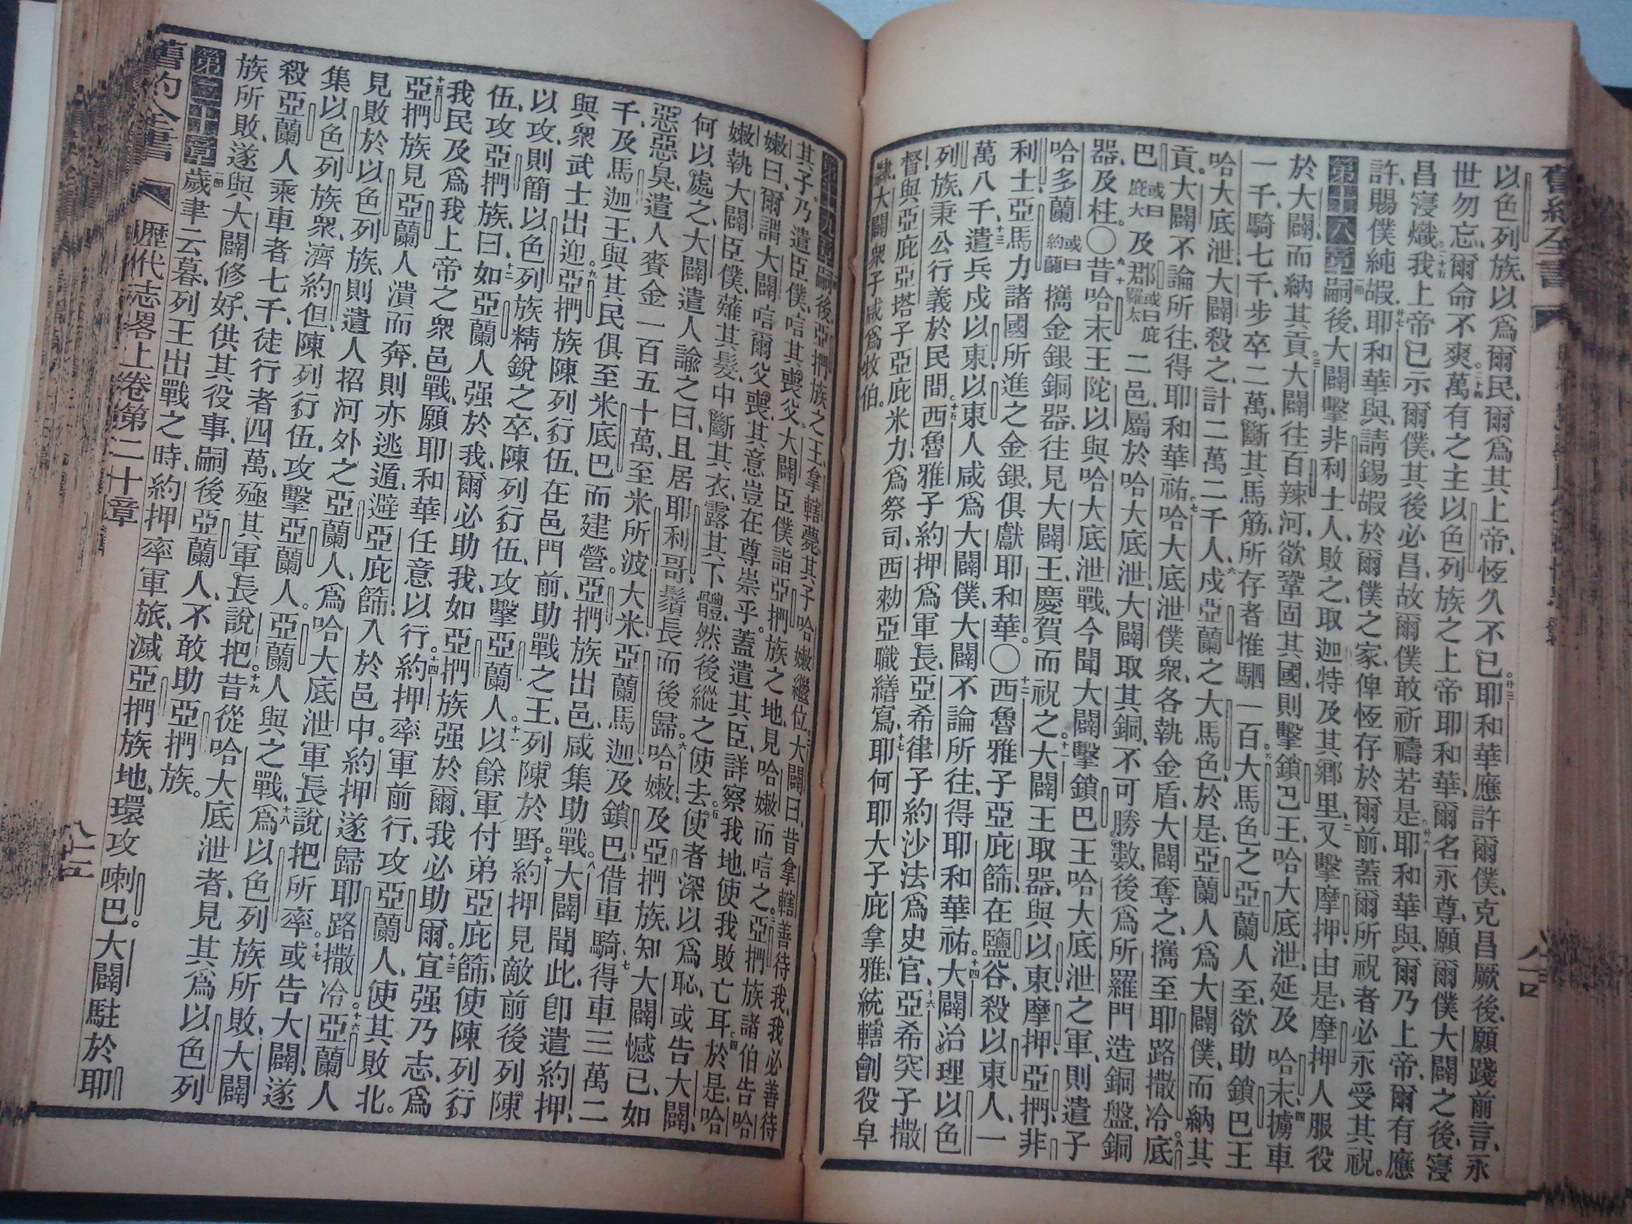 舊約全書
以色列族、以爲爾民、爾爲其上帝、恆久不已、耶和華應許爾僕、克昌厥後、願踐前言、永
世勿忘、爾命不爽、萬有之主、以色列族之上帝耶和華、爾名永尊、願爾僕大闢之後、寖
昌寖熾、我上帝已示爾僕、其後必昌、故爾僕敢祈禱若是、耶和華與、爾乃上帝、爾有應
許、賜僕純嘏、耶和華與、請錫嘏於爾僕之家、俾恆存於爾前、蓋爾所祝者、必永受其祝。
第十八章嗣後大闢擊非利士人、敗之、取迦特及其鄉里、又擊摩押、由是摩押人服役
於大闢、而納其貢、大闢往百辣河、欲鞏固其國、則擊鎖巴王哈大底泄、延及哈末、擄車
一千、騎七千、步卒二萬、斷其馬筋、所存者惟駟一百、大馬色之亞蘭人至、欲助鎖巴王
哈大底泄、大闢殺之、計二萬二千人、戍亞蘭之大馬色、於是亞蘭人爲大闢僕、而納其
貢、大闢不論所往、得耶和華祐、哈大底泄僕衆、各執金盾、大闢奪之、攜至耶路撒冷、底
巴或曰庇大及郡或曰庇羅太二邑、屬於哈大底泄、大闢取其銅、不可勝數、後爲所羅門造銅盤銅
器及柱。〇昔哈末王陀以與哈大底泄戰、今聞大闢擊鎖巴王哈大底泄之軍、則遣子
哈多蘭或曰約蘭攜金銀銅器、往見大闢王、慶賀而祝之、大闢王取器、與以東、摩押、亞捫、非
利士、亞馬力諸國所進之金銀、俱獻耶和華。〇西魯雅子亞庇篩在鹽谷、殺以東人一
萬八千、遣兵戍以東、以東人咸爲大闢僕、大闢不論所往、得耶和華祐、大闢治理以色
列族、秉公行義於民間、西魯雅子約押爲軍長、亞希律子約沙法爲史官、亞希突子撒
督、與亞庇亞塔子亞庇米力爲祭司、西勑亞職繕寫、耶何耶大子庇拿雅統轄劊役阜
隸、大闢衆子咸爲牧伯。
第十九章嗣後亞捫族之王拿轄薨、其子哈嫩繼位、大闢曰、昔拿轄善待我、我必善待
其子、乃遣臣僕、唁其喪父、大闢臣僕詣亞捫族之地、見哈嫩而唁之、亞捫族諸伯告哈
嫩曰、爾謂大闢唁爾父喪、其意豈在尊崇乎、蓋遣其臣、詳察我地、使我敗亡耳、於是哈
嫩執大闢臣僕、薙其髮、中斷其衣、露其下體、然後縱之使去、使者深以爲恥、或告大闢、
何以處之、大闢遣人諭之曰、且居耶利哥、鬚長而後歸、哈嫩及亞捫族、知大闢憾已、如
惡惡臭、遣人賚金一百五十萬、至米所波大米、亞蘭馬迦及鎖巴、借車騎、得車三萬二
千、及馬迦王、與其民俱至米底巴而建營、亞捫族出邑、咸集助戰、大闢聞此、卽遣約押、
與衆武士出迎、亞捫族陳列行伍、在邑門前、助戰之王、列陳於野、約押見敵前後列陳
以攻、則簡以色列族精銳之卒、陳列行伍、攻擊亞蘭人、以餘軍付弟亞庇篩、使陳列行
伍、攻亞捫族曰、如亞蘭人强於我、爾必助我、如亞捫族强於爾、我必助爾、宜强乃志、爲
我民及爲我上帝之衆邑戰、願耶和華任意以行。約押率軍前行、攻亞蘭人、使其敗北。
亞捫族見亞蘭人潰而奔、則亦逃遁、避亞庇篩、入於邑中、約押遂歸耶路撒冷、亞蘭人
見敗於以色列族、則遣人招河外之亞蘭人、爲哈大底泄軍長說把所率、或告大闢、遂
集以色列族衆、濟約但、陳列行伍、攻擊亞蘭人、亞蘭人與之戰、爲以色列族所敗、大闢
殺亞蘭人乘車者七千、徒行者四萬、殛其軍長說把、昔從哈大底泄者、見其爲以色列
族所敗、遂與大闢修好、供其役事、嗣後亞蘭人、不敢助亞捫族。
第二十章歲聿云暮、列王出戰之時、約押率軍旅、滅亞捫族地、環攻喇巴、大闢駐於耶
舊約全書
歷代志畧上卷第二十章